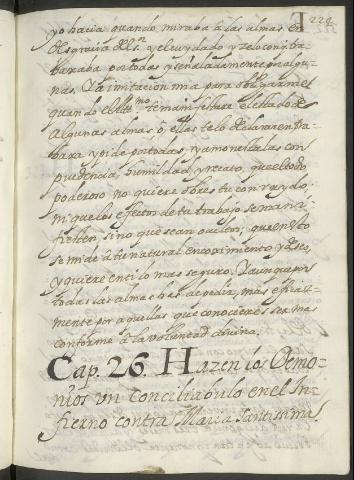 224
yo hacia quando miraba à las almas en
desgracia del Sr. y el cuydado y zelo con q. tra-
bajaba por todas y señaladamente por algu-
nas. Y à imitacion mia para obligarme
quando el Altmo. te manifestare el estado de
algunas almas, ò ellas te lo declararen tra-
baxa y pide por todas, y amonestalas con
prudencia, humildad y recato, que el todo
poderoso no quiere obres tu con ruydo,
ni que los efectos de tu trabajo se mani-
fiesten, sino que sean ocultos, que en esto
se mide à tu natural encogimiento y deseo,
y quiere en ti lo mas seguro. Y aunque por
todas las almas has de pedir, mas eficaz-
mente por aquellas que conocieres ser mas
conforme à la voluntad divina.
Cap. 26. Hazen los Demo-
nios un Conciliabulo en el In-
fierno contra Maria Santissima.